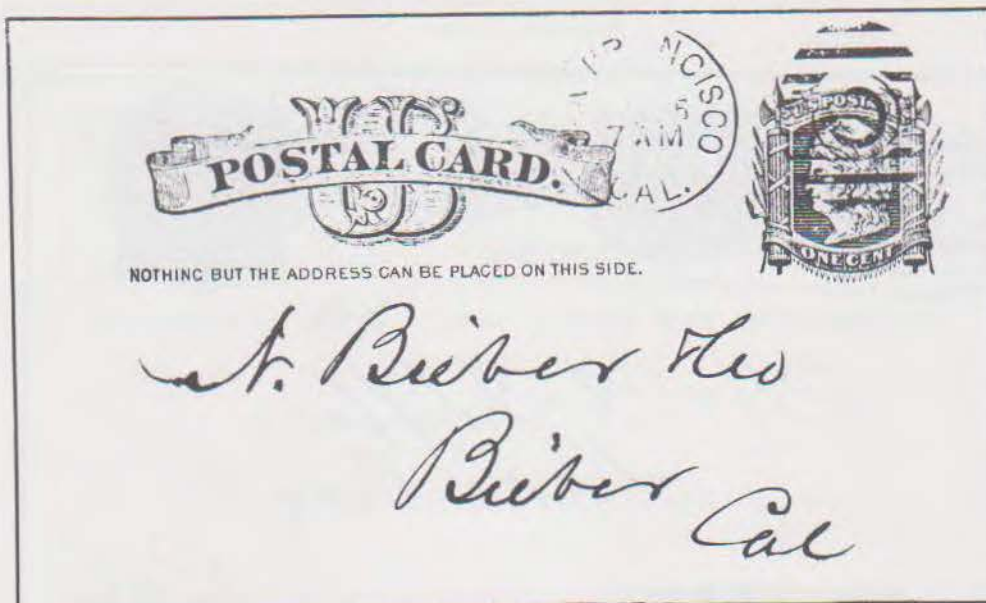 US
POSTAL CARD.
NCISCO
7 AM
CAL.
U.S. POSTAL
ONE CENT
NOTHING BUT THE ADDRESS CAN BE PLACED ON THIS SIDE.
N. Bieber
Bieber
Cal